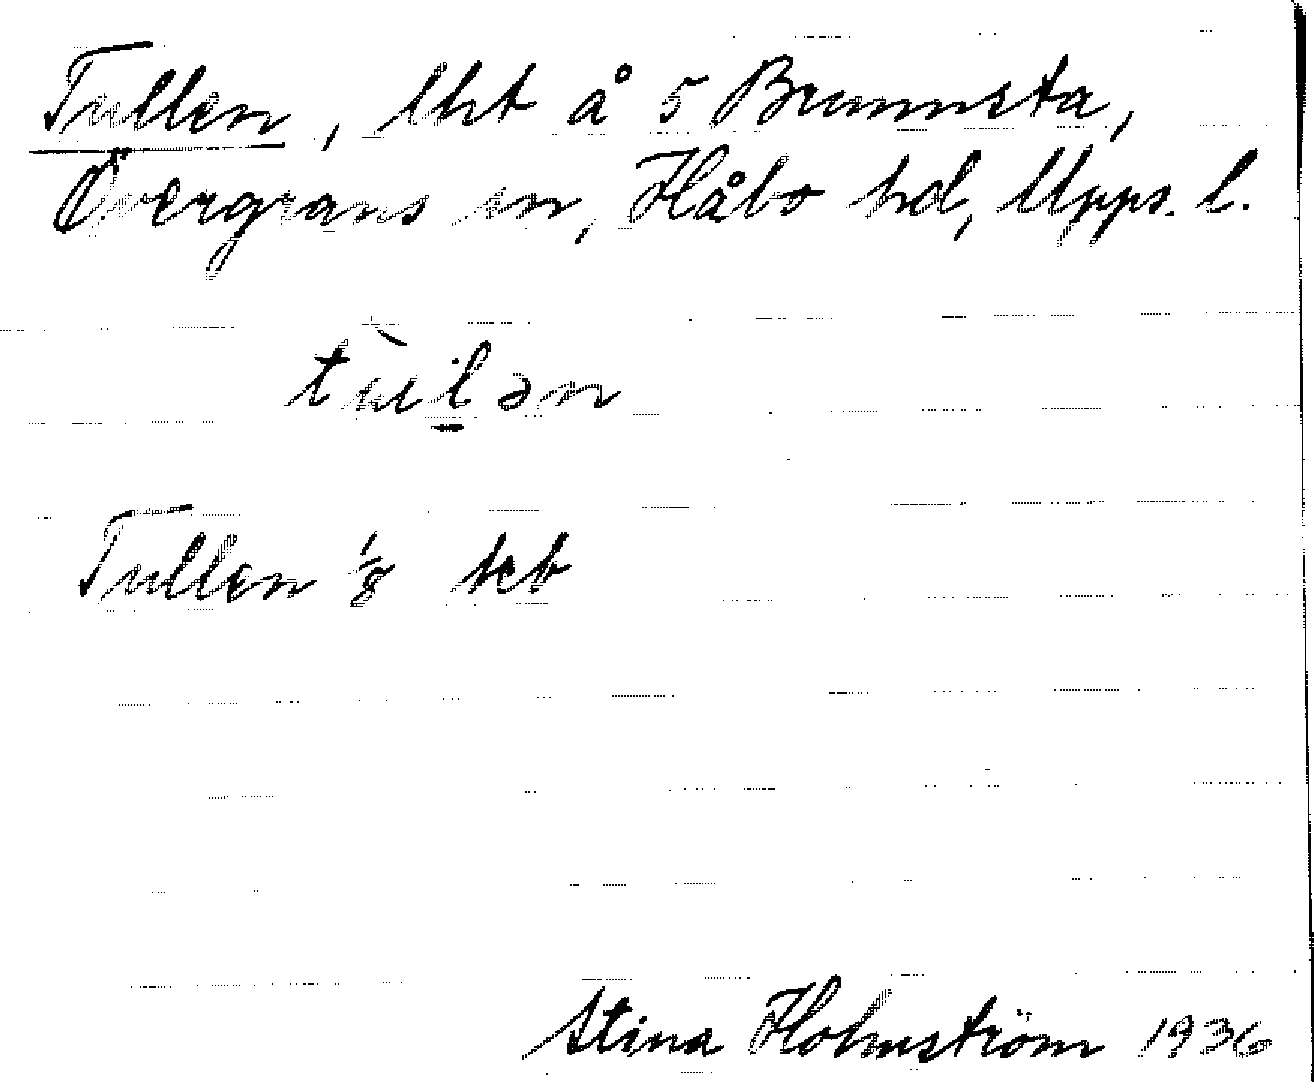 Tullen, lht å 5 Brunnsta,
Övergrans sn, Håbo hd, Upps. l.
Tullen 1/8 kb
Stina Holmström 1936